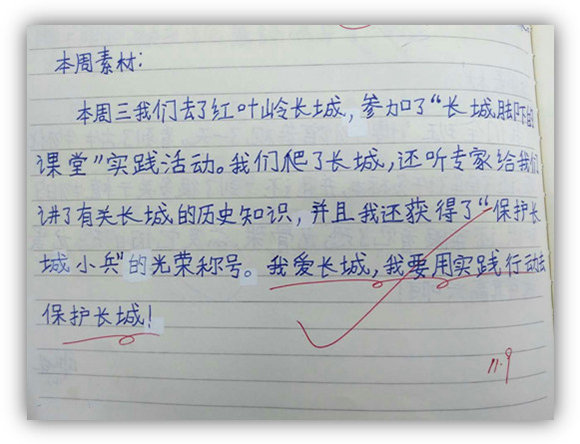 本周素材：
本周三我们去了红叶岭长城，参加了“长城脚下的
课堂”实践活动。我们爬了长城，还听专家给我们
讲了有关长城的历史知识，并且我还获得了“保护长
城小兵”的光荣称号。我爱长城，我要用实践行动去
保护长城！
11.9